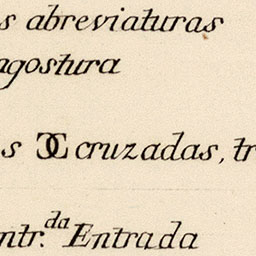 s abreviaturas
ngostura
s CC cruzadas, tr
ntr.da Entrada